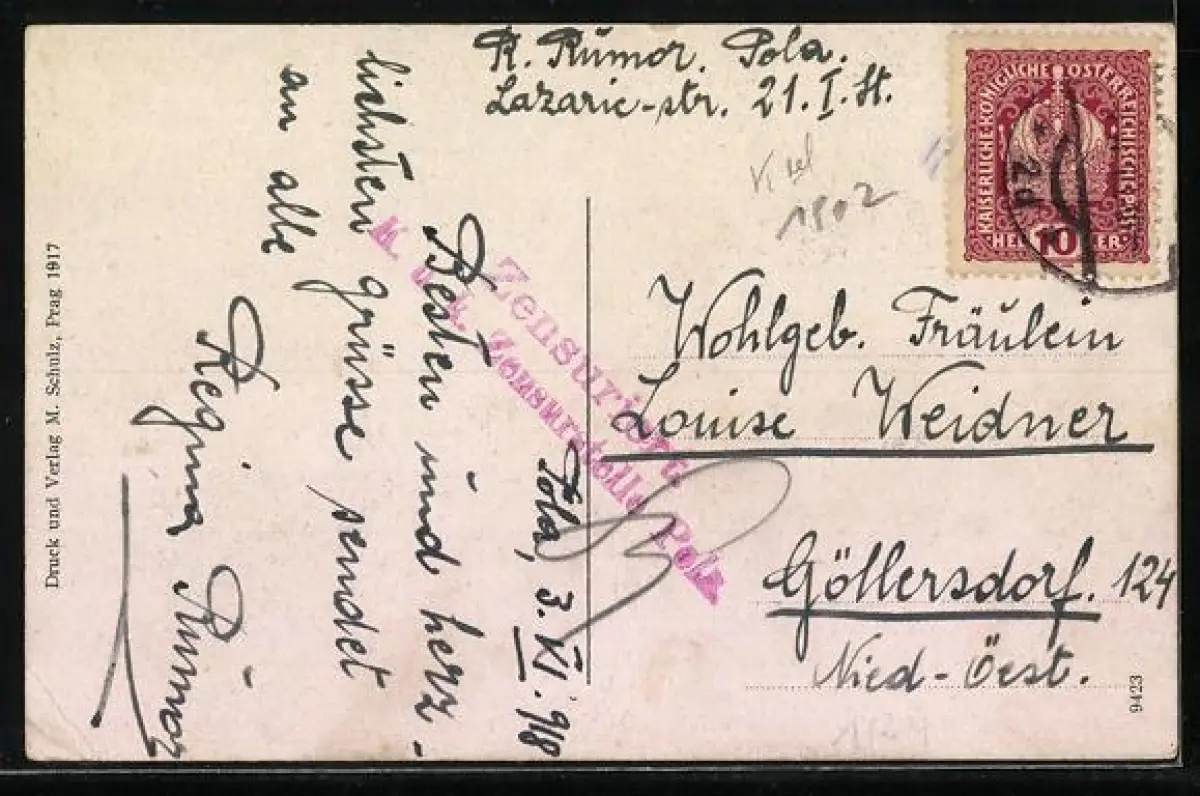 R. Rumor. Pola.
Lazaric-str. 21. I. St.
KAISERLICHE KÖNIGLICHE ÖSTERREICHISCHE POST
HELLER
10
1902
Wohlgeb. Fräulein
Louise Weidner
Göllersdorf. 124
Nied-Öest.
9423
Zensuriert
K. u. k. Zensurstelle Pola
Pola, 3. VI. 918
Besten und herz-
lichsten grüsse sendet
an alle
Regina Rumor
Druck und Verlag M. Schulz, Prag 1917